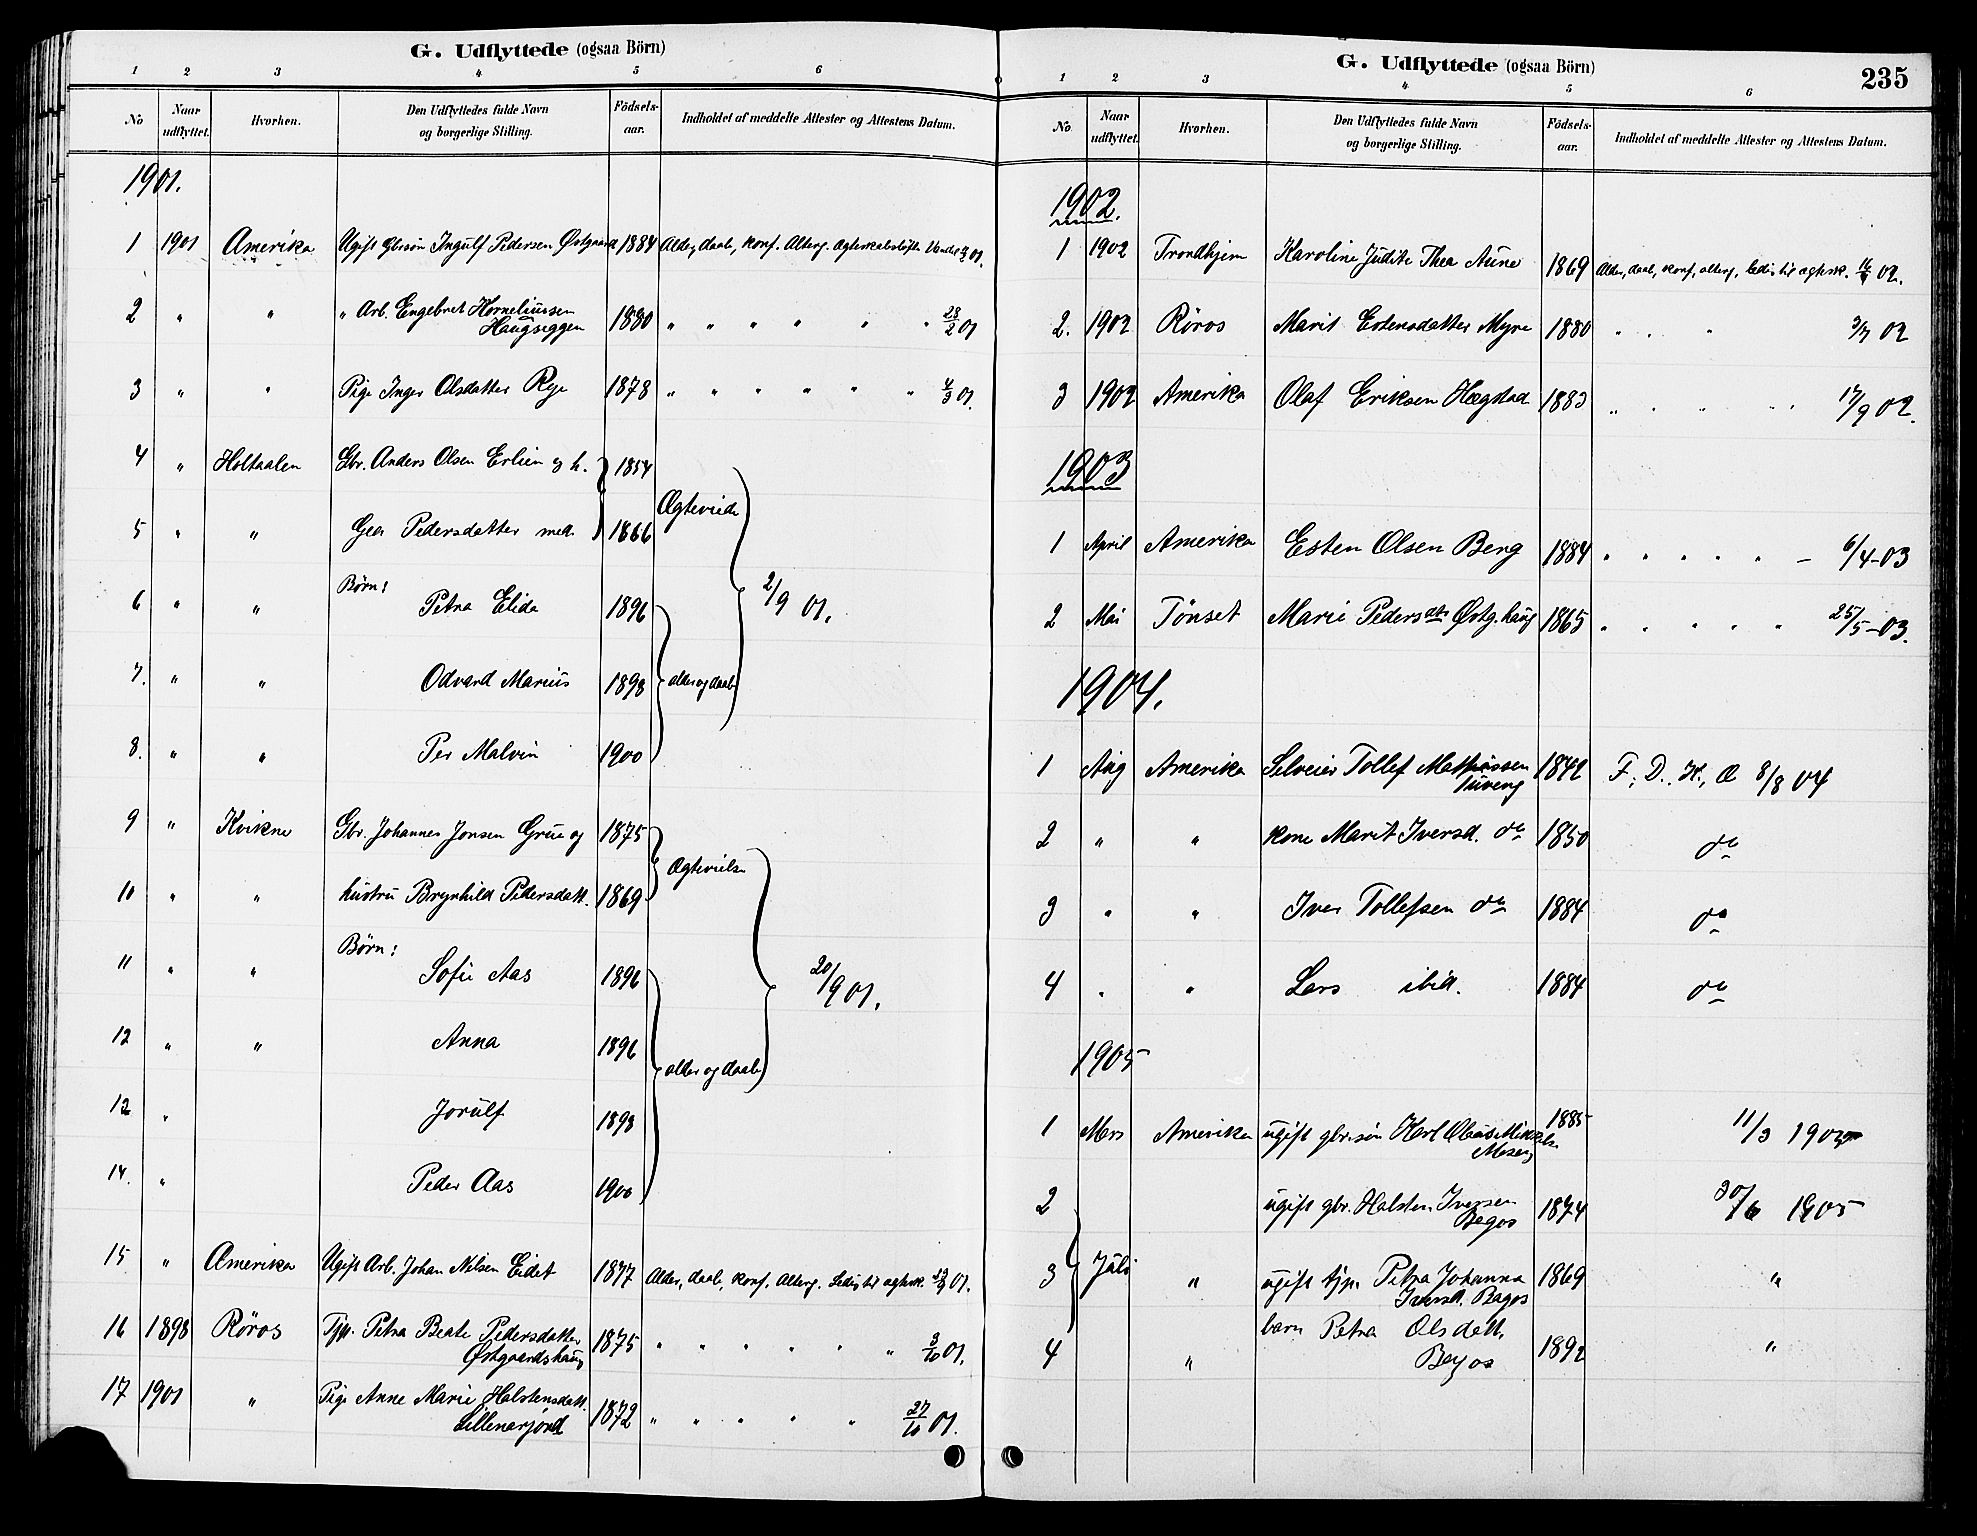 G. Udflyttede (ogsaa Börn)
1 2 3 4 5 6
No Naar udflyttet. Hvorhen. Den Udflyttedes fulde Navn og borgerlige Stilling. Födsels-aar. Indholdet af meddelte Attester og Attestens Datum.
1901.
1 1901 Amerika Ugift Gbrsøn Ingulf Pedersen Østgaard 1884 Alder, daab, konf. Alterg. Ægteskabsløfte 01.
2 " " " Arb. Engebret Korneliussen Haugseggen 1880 " " " " " " 28/2 01
3 " " Pige Inger Olsdatter Rye 1878 " " " " " " 4/3 01.
4 " Holtaalen Gbr. Anders Olsen Erlien og h. 1854
Ægtevielse
5 " " Gea Pedersdatter med 1866
Børn:
6 " " Petra Elida 1896 2/9 01.
7. " " Odvard Marius 1898 alder og daab
8. " " Per Malvin 1900
9 " Kvikne Gbr. Johannes Jonsen Grue og 1875
Ægtevielse
10 " " hustru Brynhild Pedersdatt. 1869
Børn:
11 " " Sofie Aas 1896 20/9 01.
12 " " Anna 1896 alder og daab
12 " Jorulf 1898
14. " Peder Aas 1900
15 " Amerika Ugift Arb. Johan Nilsen Eidet 1877 Alder, daab, konf. Alterg. Ledig til ægtesk. 01.
16 1898 Røros Tjp. Petra Beate Pedersdatter Østgaardshaug 1875 " " " " " " 3/10 01.
17 1901 " Pige Anne Marie Halstensdatt. Lillenarjord 1872 " " " " " 27/10 01.
G. Udflyttede (ogsaa Börn) 235
1 2 3 4 5 6
No Naar udflyttet. Hvorhen. Den Udflyttedes fulde Navn og borgerlige Stilling. Födsels-aar. Indholdet af meddelte Attester og Attestens Datum.
1902.
1 1902 Trondhjem Karoline Judite Thea Aune 1869 Alder, daab, konf, alterg, ledig til ægtesk. 02.
2. 1902 Røros Marit Estensdatter Myre 1880 " " " 3/7 02
3 1902 Amerika Olaf Eriksen Hægstad 1883 " " " " " 17/9 02.
1903
1 April Amerika Esten Olsen Berg 1884 " " " " " – 6/4-03
2 Mai Tönset Marie Pedersdtr Østg.haug 1865 " " " " " 25/5-03.
1904.
1 Aug Amerika Selveier Tollef Mathiassen Tuveng 1842 F, D. K., Æ 8/8 04
2 " " kone Marit Iversd. do 1850 do
3 " " Iver Tollefsen do 1884 do
4 " " Lars ibid. 1884 do
1905
1 Mars Amerika ugift gbrsøn Karl Olaus Mikkels. Moseng 1885 11/3 1905
2 ugift gbr. Halsten Iversen Bagos 1874 30/6 1905
3 Juli " ugift tjp. Petra Johanna Iversd. Bagos 1869 "
4 " barn Petra Olsdatt. Bagos 1892 "